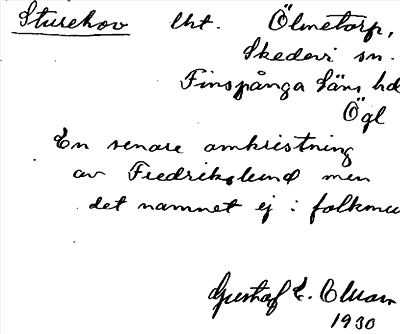 Sturehov lht. Ölmetorp,
Skedevi sn.
Finspånga läns hd
Ögl
En senare omkristning
av Fredrikslund men
det namnet ej i folkmun
Gustaf E.
1930